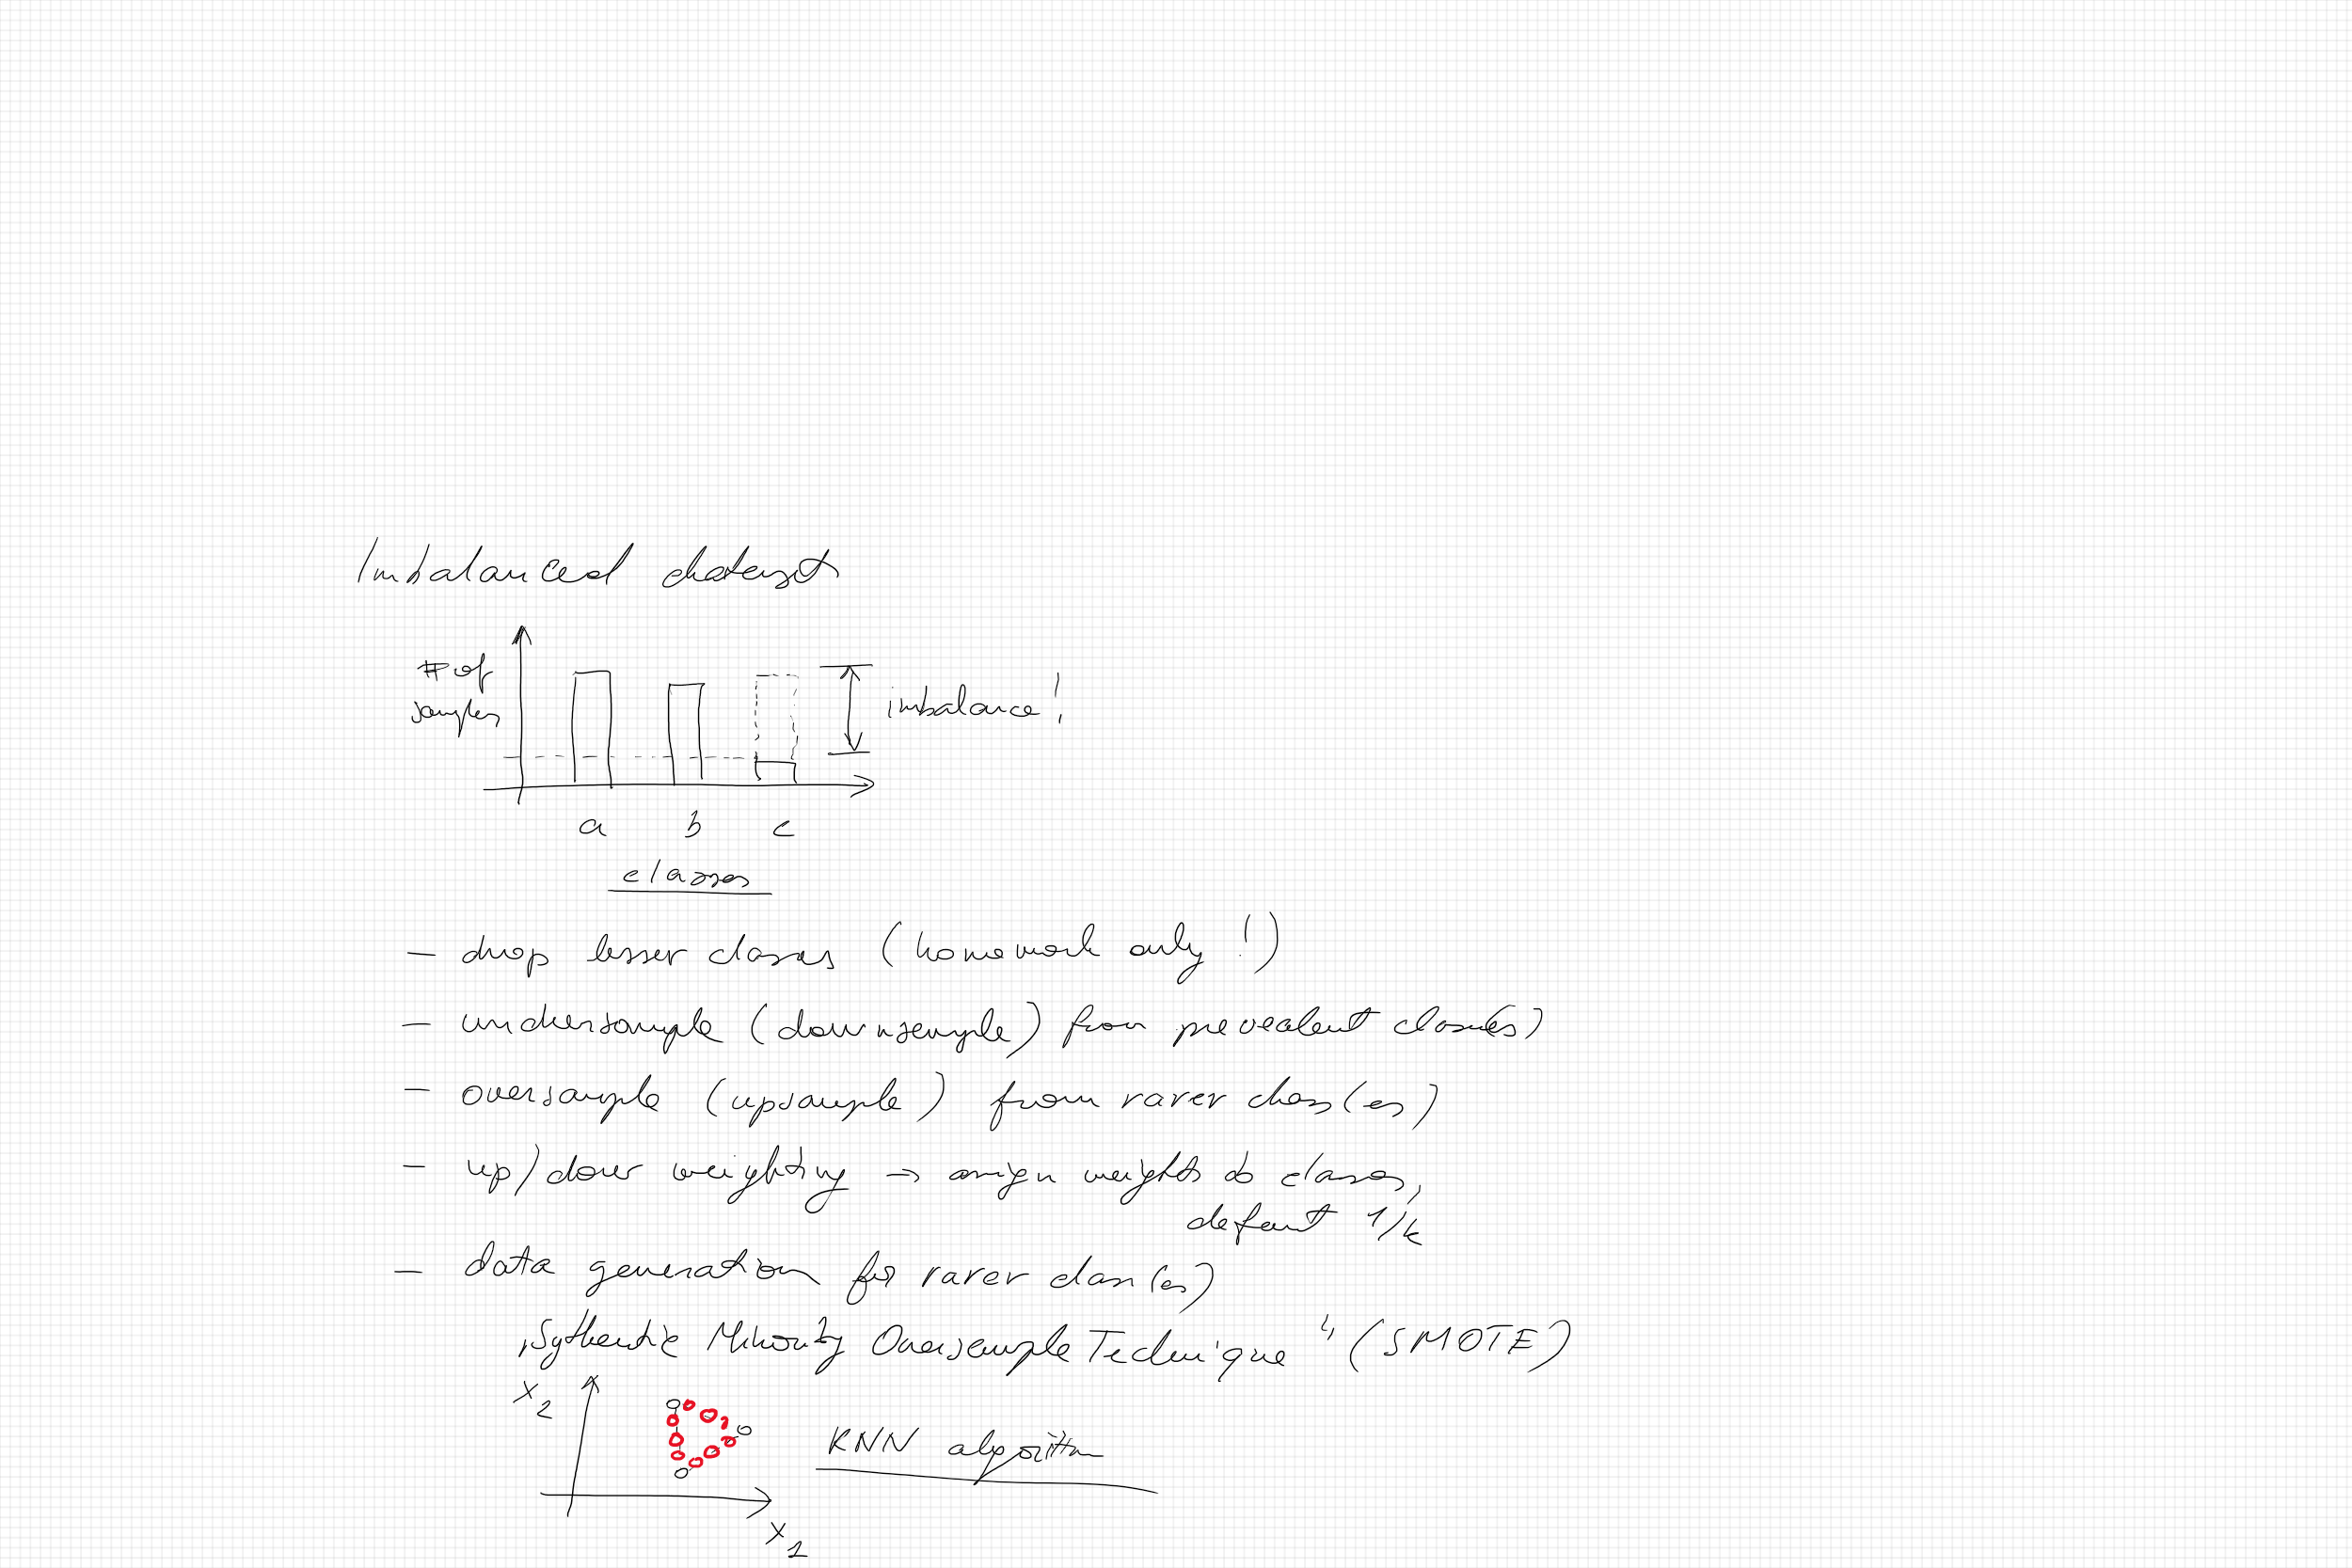 Imbalanced dataset
# of
samples
imbalance!
a b c
classes
- drop lesser classes (homework only!)
- undersample (downsample) from prevealent class(es)
- oversample (upsample) from rarer class(es)
- up/down weighting → assign weights to classes,
default 1/k
- data generation for rarer class(es)
„Sythentic Minority Oversample Technique" (SMOTE)
x2
KNN algorithm
x1